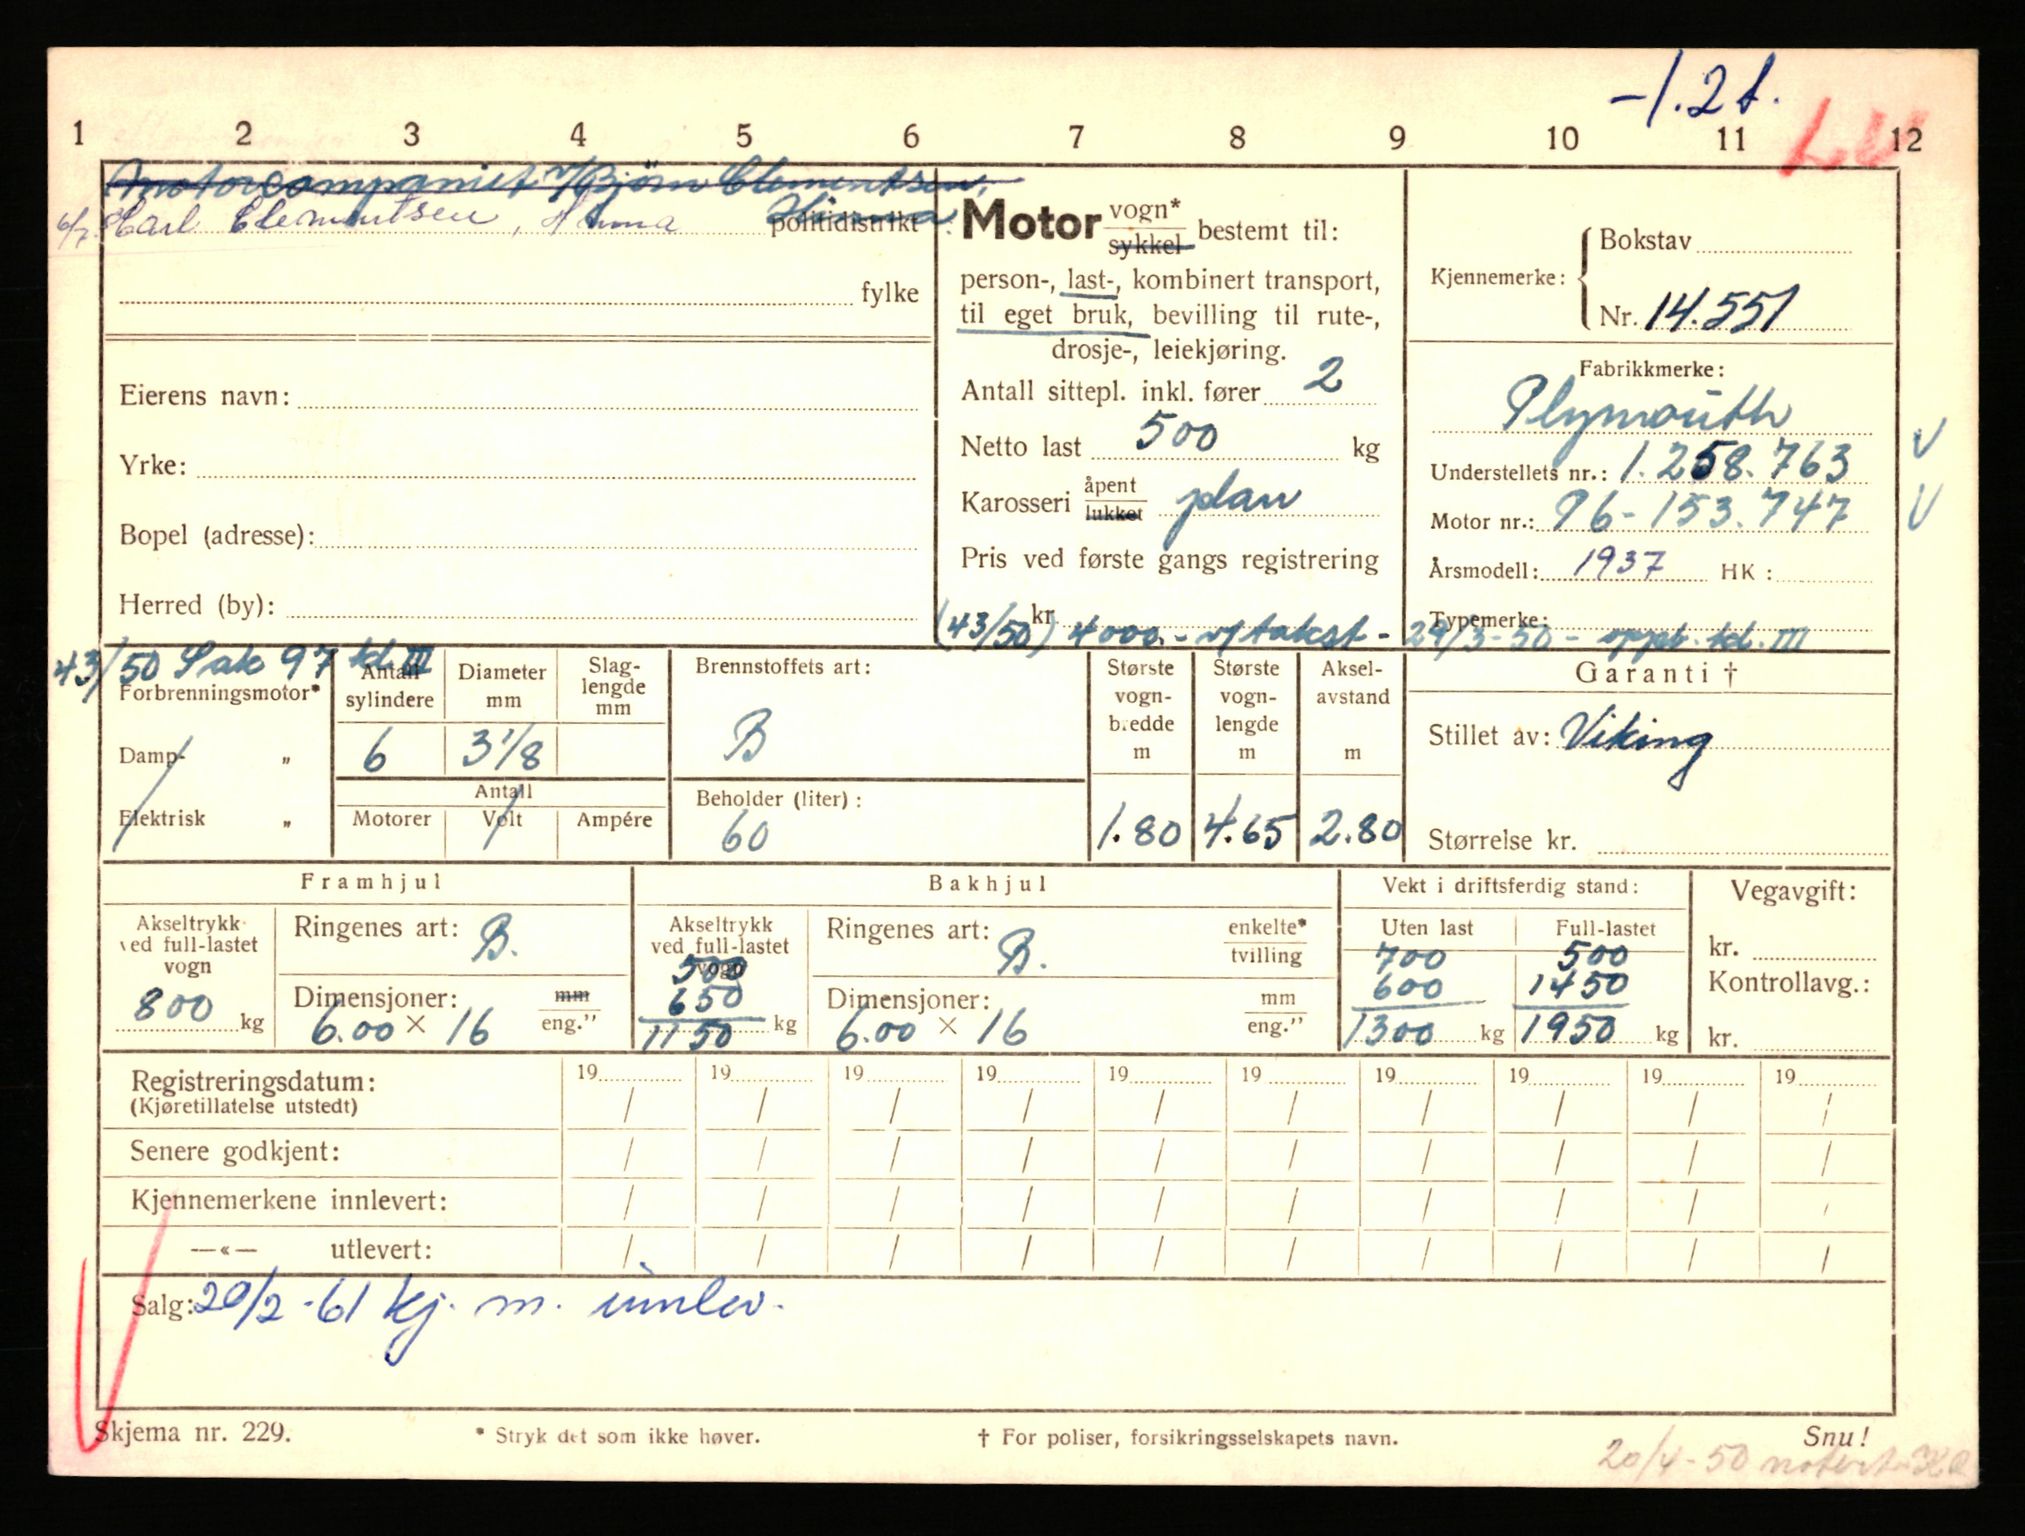 -1.2t.
LU
1 2 3 4 5 6 7 8 9 10 11 12
Motorcompaniet v/Bjørn Clementsen,
Hinna
6/7. Karl Clementsen, Hinna politidistrikt
fylke
Eierens navn:
Yrke:
Bopel (adresse):
Herred (by):
Motor vogn* sykkel bestemt til:
person-, last-, kombinert transport,
til eget bruk, bevilling til rute-,
drosje-, leiekjøring.
Antall sittepl. inkl. fører 2
Netto last 500 kg
Karosseri åpent lukket plan
Pris ved første gangs registrering
kr
(43/50) 4000.- v/takst - 29/3-50 - oppb. kl. III
Kjennemerke: Bokstav
Nr. 14.551
Fabrikkmerke:
Plymouth
Understellets nr.: 1.258.763
Motor nr.: P6-153.747
Årsmodell: 1937 HK:
Typemerke:
43/50 Sak 97 kl. III
Forbrenningsmotor*
Damp- „
Elektrisk „
Antall sylindere
6
Diameter mm
3 1/8
Slaglengde mm
Antall
Motorer Volt Ampére
Brennstoffets art:
B
Beholder (liter):
60
Største vognbredde m
1.80
Største vognlengde m
4.65
Akselavstand m
2.80
Garanti †
Stillet av: Viking
Størrelse kr.
Framhjul
Akseltrykk
ved full-lastet
vogn
800 kg
Ringenes art: B.
Dimensjoner: mm
6.00 × 16 eng."
Bakhjul
Akseltrykk
ved full-lastet
vogn
500
650
1150 kg
Ringenes art: B. enkelte* tvilling
Dimensjoner: mm
6.00 × 16 eng."
Vekt i driftsferdig stand:
Uten last Full-lastet
700 500
600 1450
1300 kg 1950 kg
Vegavgift:
kr.
Kontrollavg.:
kr.
Registreringsdatum: 19 19 19 19 19 19 19 19 19 19
(Kjøretillatelse utstedt) / / / / / / / / / /
Senere godkjent: / / / / / / / / / /
Kjennemerkene innlevert: / / / / / / / / / /
—«— utlevert: / / / / / / / / / /
Salg: 20/2-61 kj. m. innlev.
Skjema nr. 229.
* Stryk det som ikke høver.
† For poliser, forsikringsselskapets navn.
Snu!
20/4-50 notert